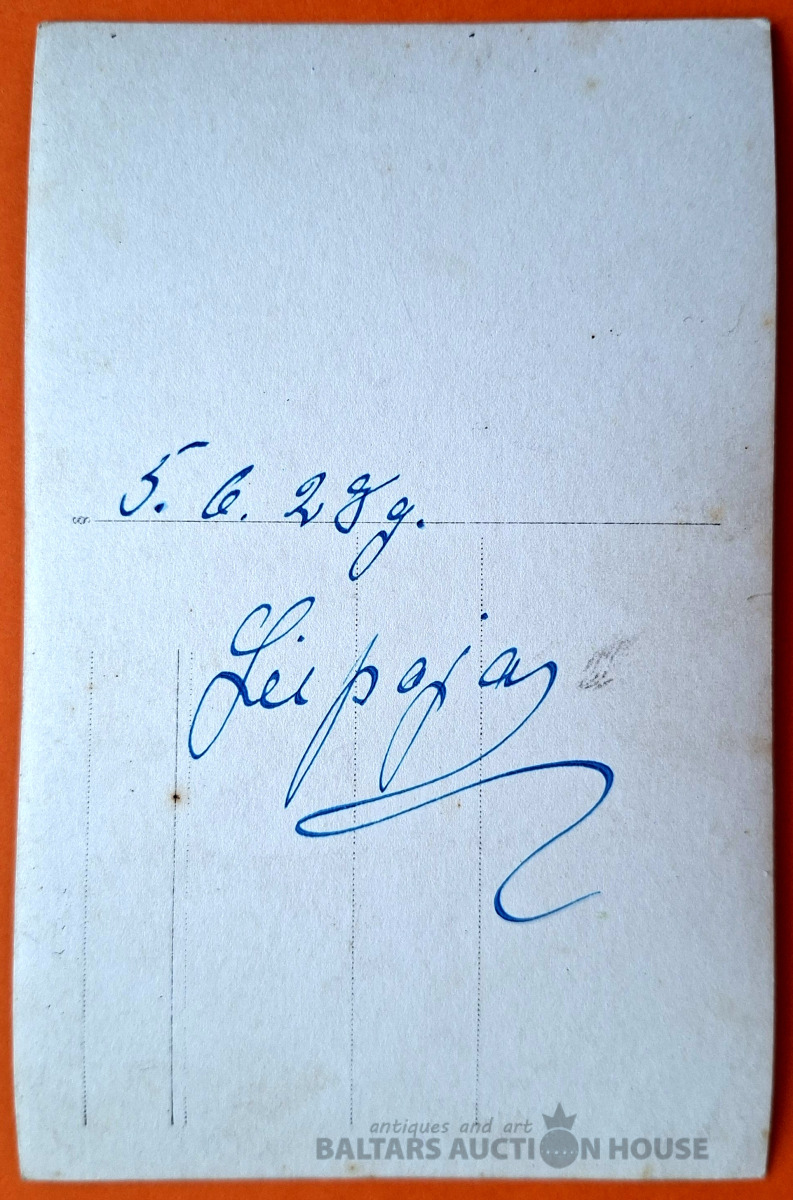 5. 6. 28 g.
Liepaja
antiques and art
BALTARS AUCTION HOUSE